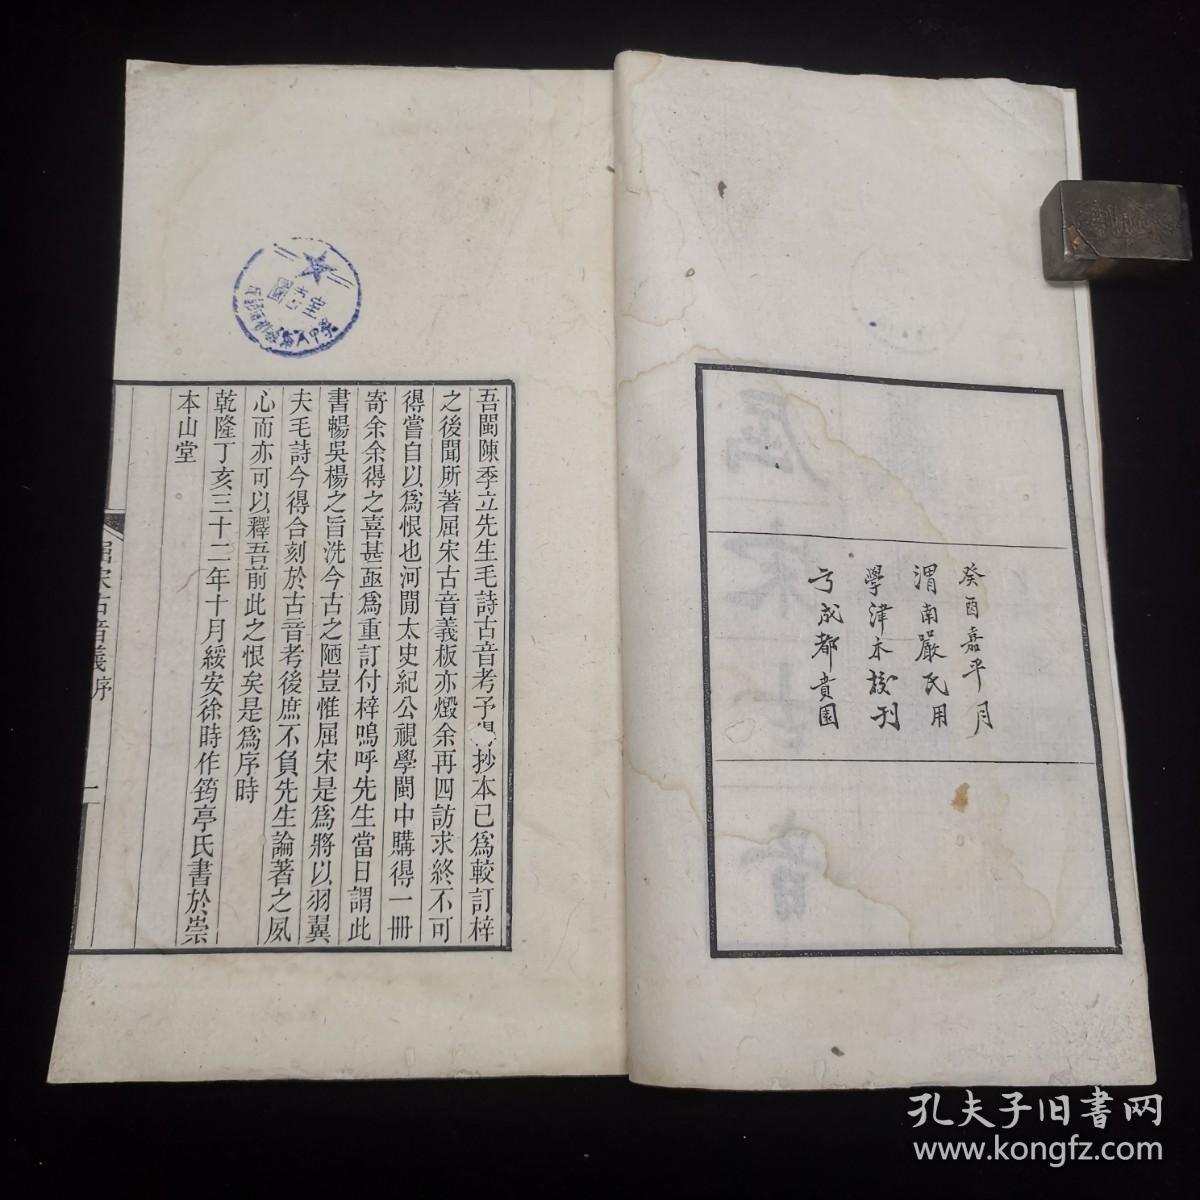 癸酉嘉平月
渭南嚴氏用
學津本校刊
于成都賁園
吾閩陳季立先生毛詩古音考予得抄本已為較訂梓
之後聞所著屈宋古音義板亦燬余再四訪求終不可
得嘗自以為恨也河間太史紀公視學閩中購得一冊
寄余余得之喜甚亟為重訂付梓嗚呼先生當日謂此
書暢吳楊之旨洗今古之陋豈惟屈宋是為將以羽翼
夫毛詩今得合刻於古音考後庶不負先生論著之夙
心而亦可以釋吾前此之恨矣是為序時
乾隆丁亥三十二年十月綏安徐時作筠亭氏書於崇
本山堂
屈宋古音義序
一
孔夫子旧書网
www.kongfz.com